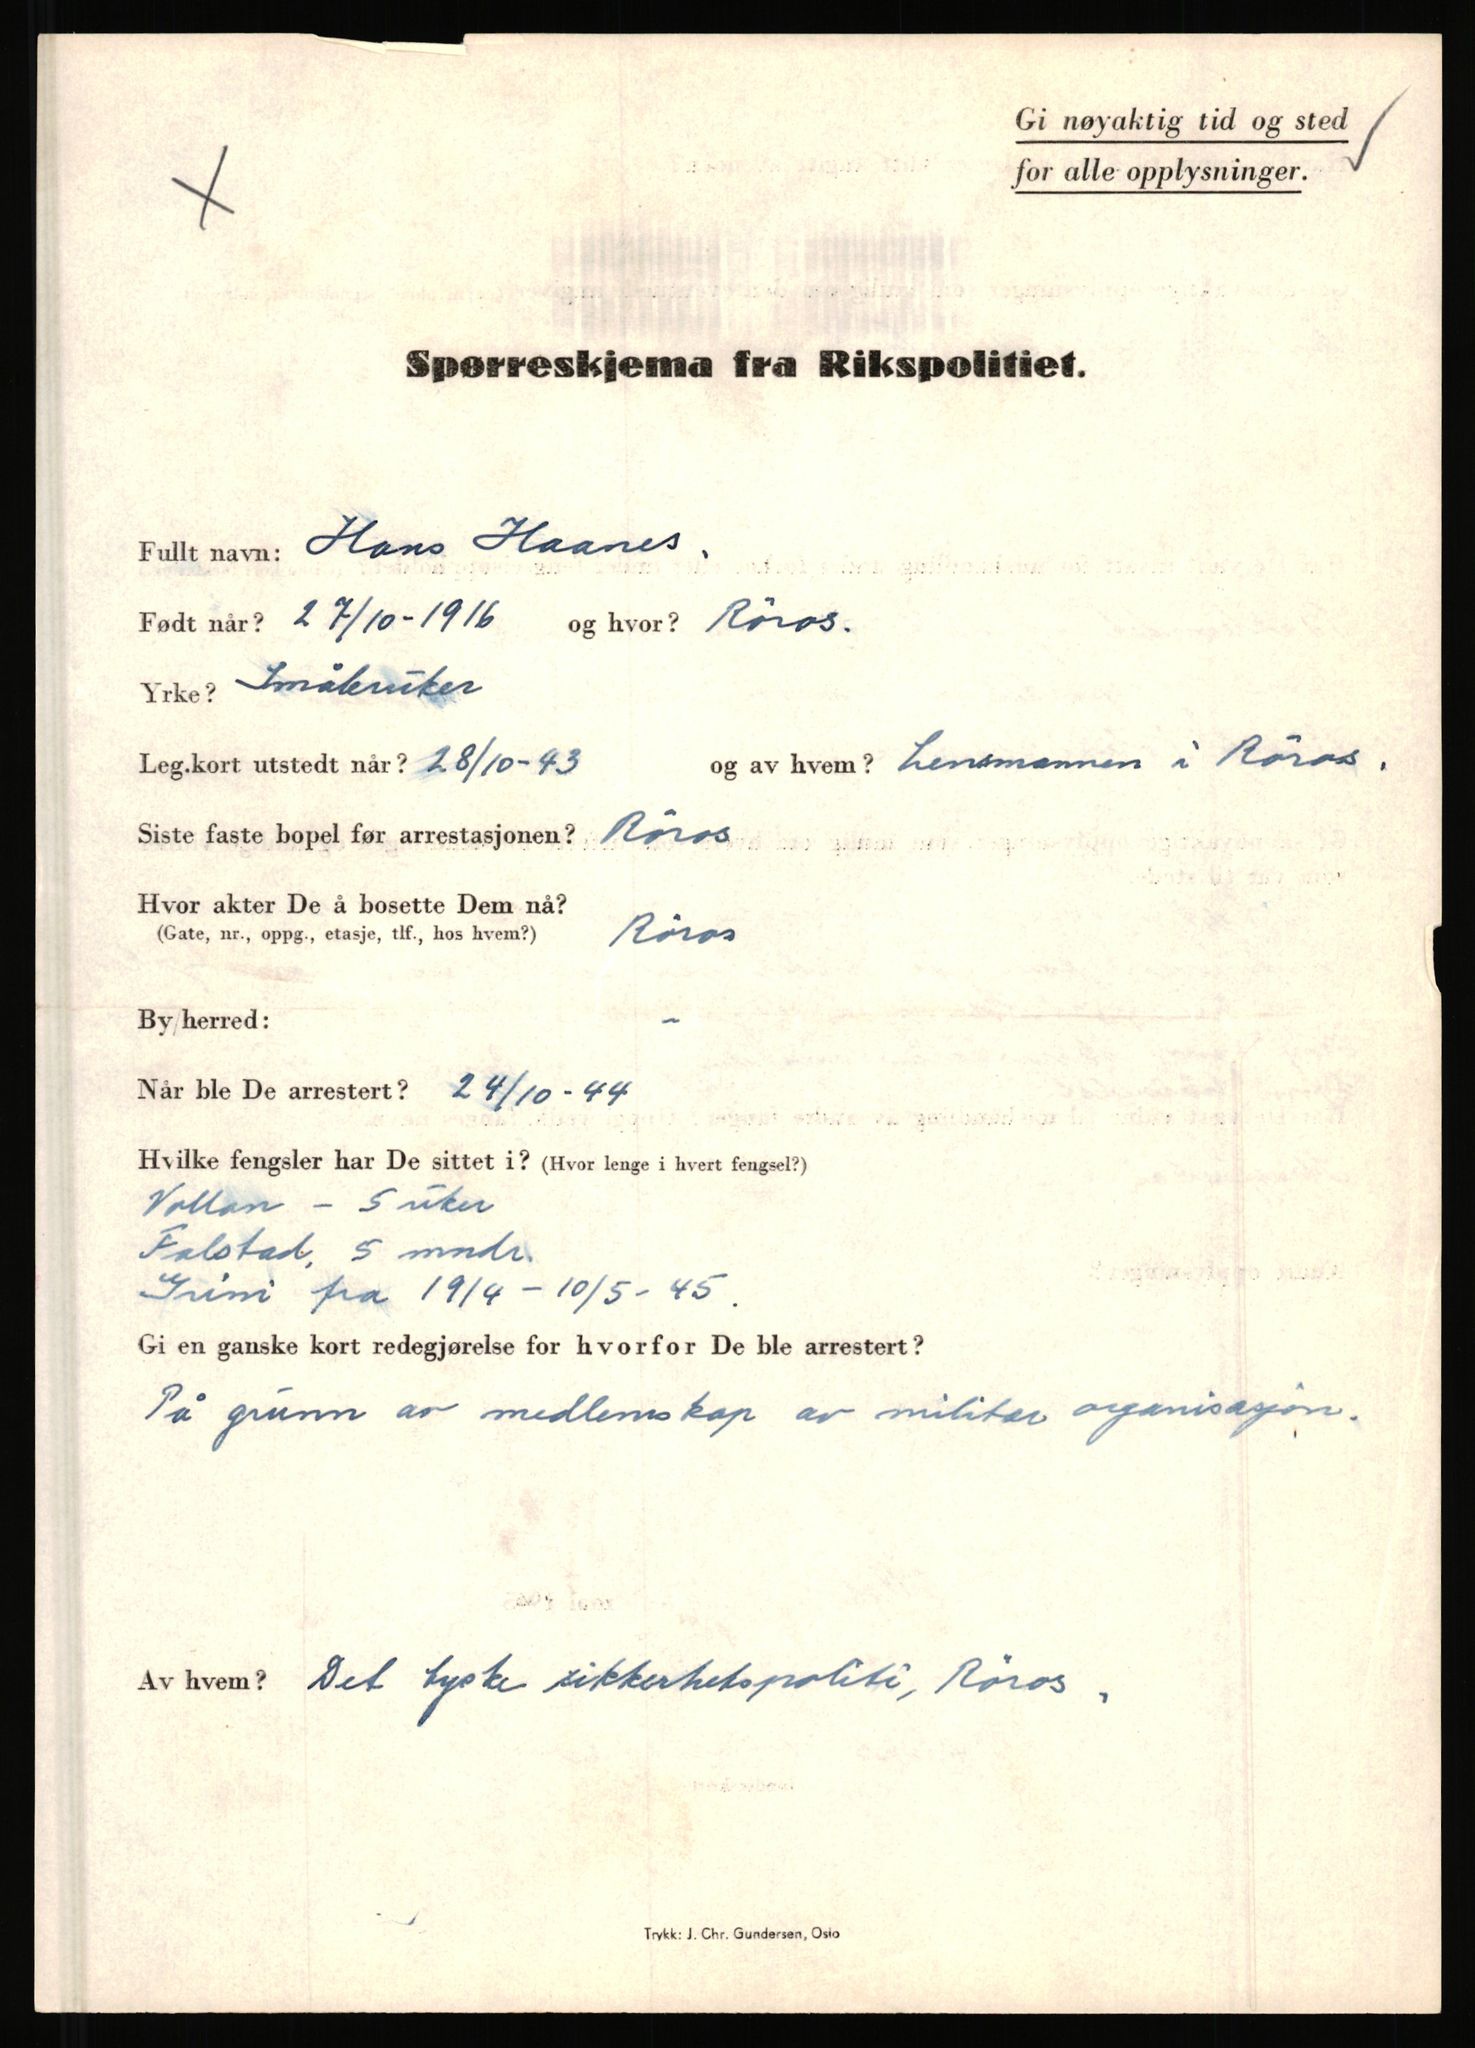 Gi nøyaktig tid og sted
for alle opplysninger.
Spørreskjema fra Rikspolitiet.
Fullt navn: Hans Haanes.
Født når? 27/10-1916 og hvor? Röros.
Yrke? Småbruker
Leg.kort utstedt når? 28/10-43 og av hvem? Lensmannen i Röros.
Siste faste bopel før arrestasjonen? Röros
Hvor akter De å bosette Dem nå?
(Gate, nr., oppg., etasje, tlf., hos hvem?) Röros
By/herred: -
Når ble De arrestert? 24/10-44
Hvilke fengsler har De sittet i? (Hvor lenge i hvert fengsel?)
Vollan - 5 uker
Falstad, 5 mndr.
Grini fra 19/4 - 10/5-45.
Gi en ganske kort redegjørelse for hvorfor De ble arrestert?
På grunn av medlemskap av militær organisasjon.
Av hvem? Det tyske sikkerhetspoliti, Röros.
Trykk: J. Chr. Gundersen, Oslo